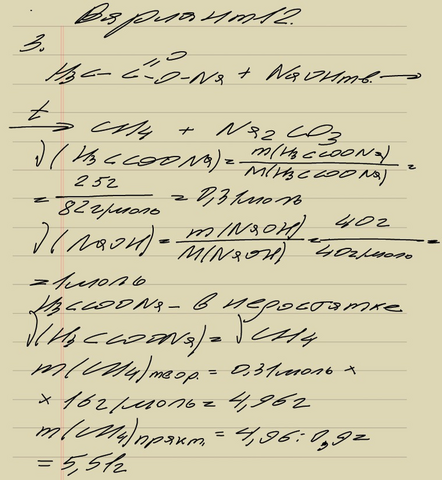 Вариант 12.
3.
H₃C – C =O –O–Na + NaOHтв. →
t → CH₄ + Na₂CO₃
ν(H₃CCOONa) = m(H₃CCOONa) / M(H₃CCOONa) =
= 25г / 82г/моль = 0,31моль
ν(NaOH) = m(NaOH) / M(NaOH) = 40г / 40г/моль =
= 1моль
H₃CCOONa – в неростатке
ν(H₃CCOONa) = νCH₄
m(CH₄)теор. = 0,31моль ×
× 16г/моль = 4,96г
m(CH₄)практ. = 4,96 : 0,9г
= 5,51г